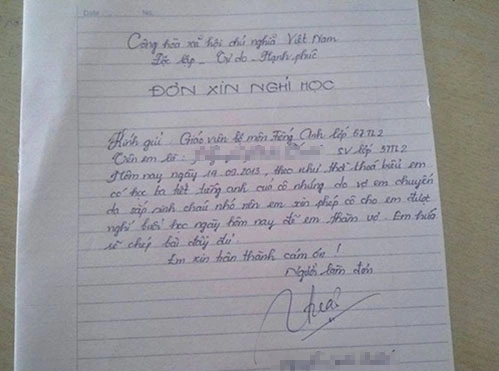 Date No.
Cộng hòa xã hội chủ nghĩa Việt Nam
Độc lập - Tự do - Hạnh phúc
ĐƠN XIN NGHỈ HỌC
Kính gửi : Giáo viên bộ môn Tiếng Anh lớp 57TL2
Tên em là : SV lớp 57TL2
Hôm nay ngày 19.02.2013, theo như thời khoá biểu em
có học ba tiết tiếng anh của cô nhưng do vợ em chuyển
dạ sắp sinh cháu nhỏ nên em xin phép cô cho em được
nghỉ buổi học ngày hôm nay để em thăm vợ. Em hứa
sẽ chép bài đầy đủ.
Em xin chân thành cám ơn !
Người làm đơn